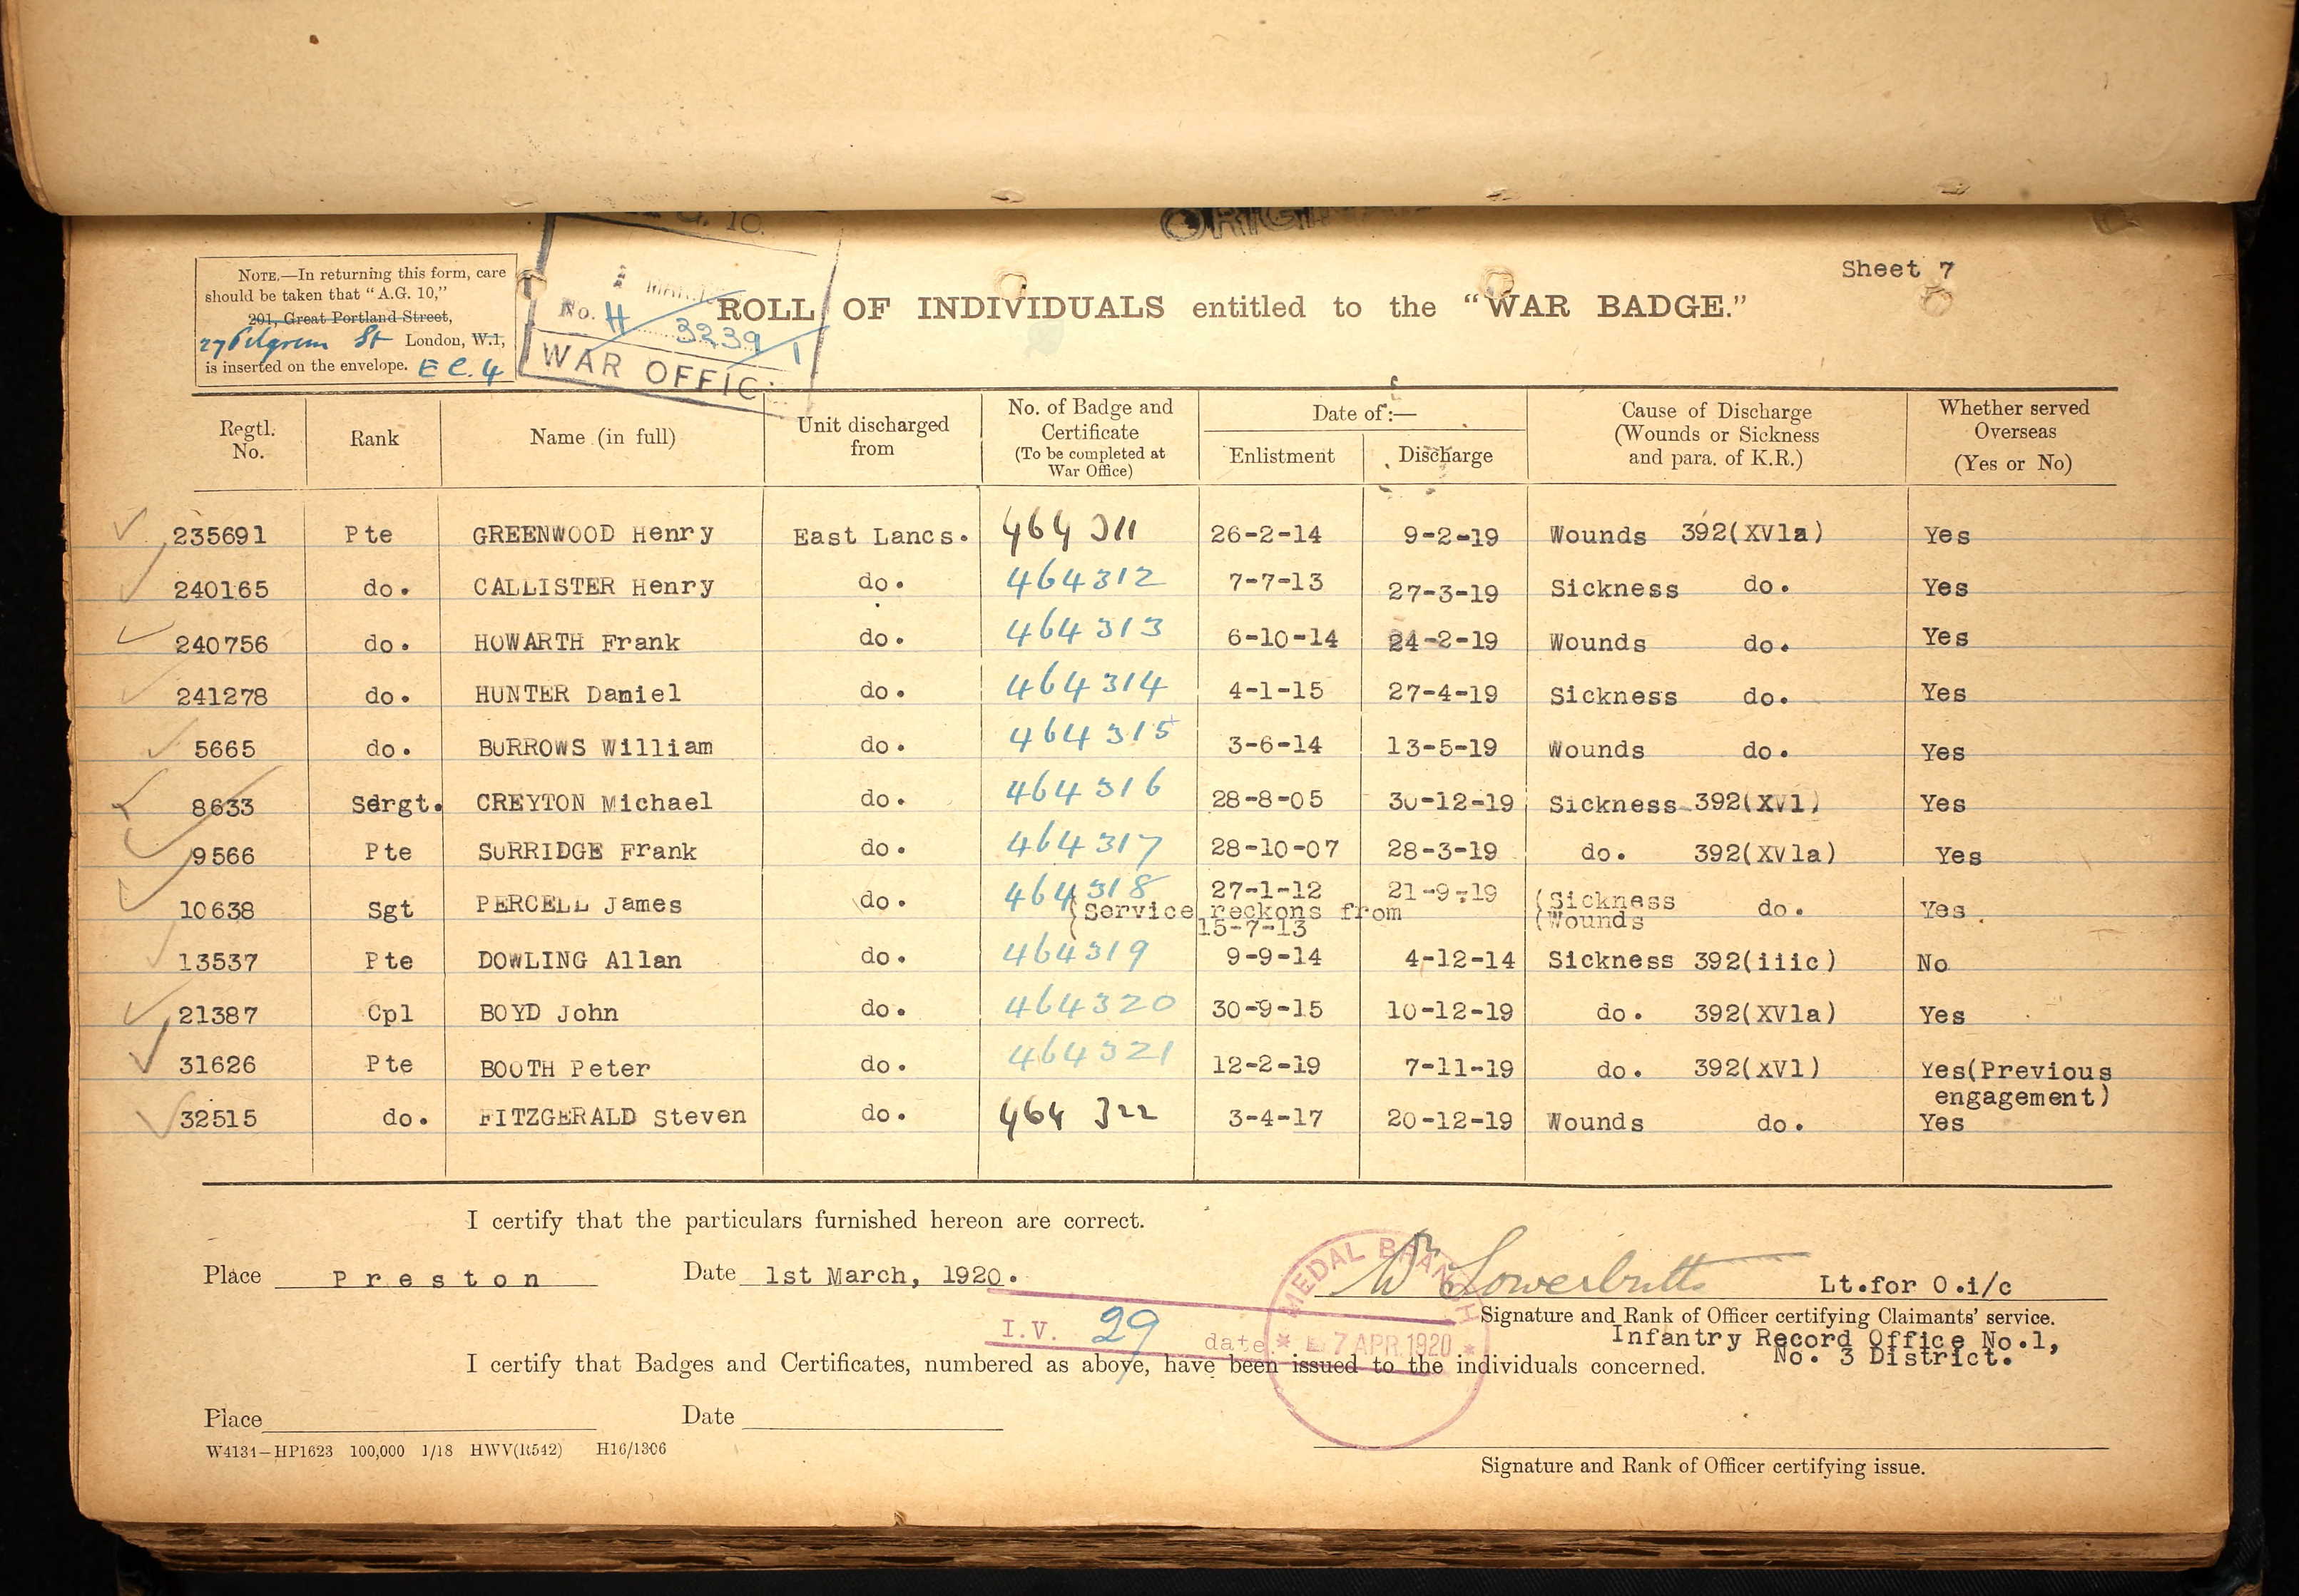 ORIGI
G. 10.
Sheet 7
NOTE.—In returning this form, care
should be taken that "A.G. 10,"
201, Great Portland Street,
27 Pilgrim St London, W.1,
is inserted on the envelope. E C. 4
No. H 3239 / 1
WAR OFFIC
ROLL OF INDIVIDUALS entitled to the "WAR BADGE."
Regtl. No. Rank Name (in full) Unit discharged from No. of Badge and Certificate (To be completed at War Office) Date of:— Enlistment Discharge Cause of Discharge (Wounds or Sickness and para. of K.R.) Whether served Overseas (Yes or No)
235691 Pte GREENWOOD Henry East Lancs. 464 311 26-2-14 9-2-19 Wounds 392(XV1a) Yes
240165 do. CALLISTER Henry do. 464312 7-7-13 27-3-19 Sickness do. Yes
240756 do. HOWARTH Frank do. 464313 6-10-14 24-2-19 Wounds do. Yes
241278 do. HUNTER Daniel do. 464314 4-1-15 27-4-19 Sickness do. Yes
5665 do. BURROWS William do. 464315 3-6-14 13-5-19 Wounds do. Yes
8633 Sergt. CREYTON Michael do. 464316 28-8-05 30-12-19 Sickness 392(XV1) Yes
9566 Pte SURRIDGE Frank do. 464317 28-10-07 28-3-19 do. 392(XV1a) Yes
10638 Sgt PERCELL James do. 464318 27-1-12 21-9-19 (Sickness do. Yes.
(Service reckons from (Wounds
15-7-13
13537 Pte DOWLING Allan do. 464319 9-9-14 4-12-14 Sickness 392(iiic) No
21387 Cpl BOYD John do. 464320 30-9-15 10-12-19 do. 392(XV1a) Yes
31626 Pte BOOTH Peter do. 464321 12-2-19 7-11-19 do. 392(XV1) Yes(Previous
engagement)
32515 do. FITZGERALD Steven do. 464 322 3-4-17 20-12-19 Wounds do. Yes
I certify that the particulars furnished hereon are correct.
Place Preston Date 1st March, 1920. W Lowerbutts Lt.for O.i/c
Signature and Rank of Officer certifying Claimants' service.
Infantry Record Office No.1,
No. 3 District.
MEDAL BRANCH
I.V. 29 date * 7 APR.1920 *
I certify that Badges and Certificates, numbered as above, have been issued to the individuals concerned.
Place Date
W4134—HP1623 100,000 1/18 HWV(R542) H16/1306
Signature and Rank of Officer certifying issue.